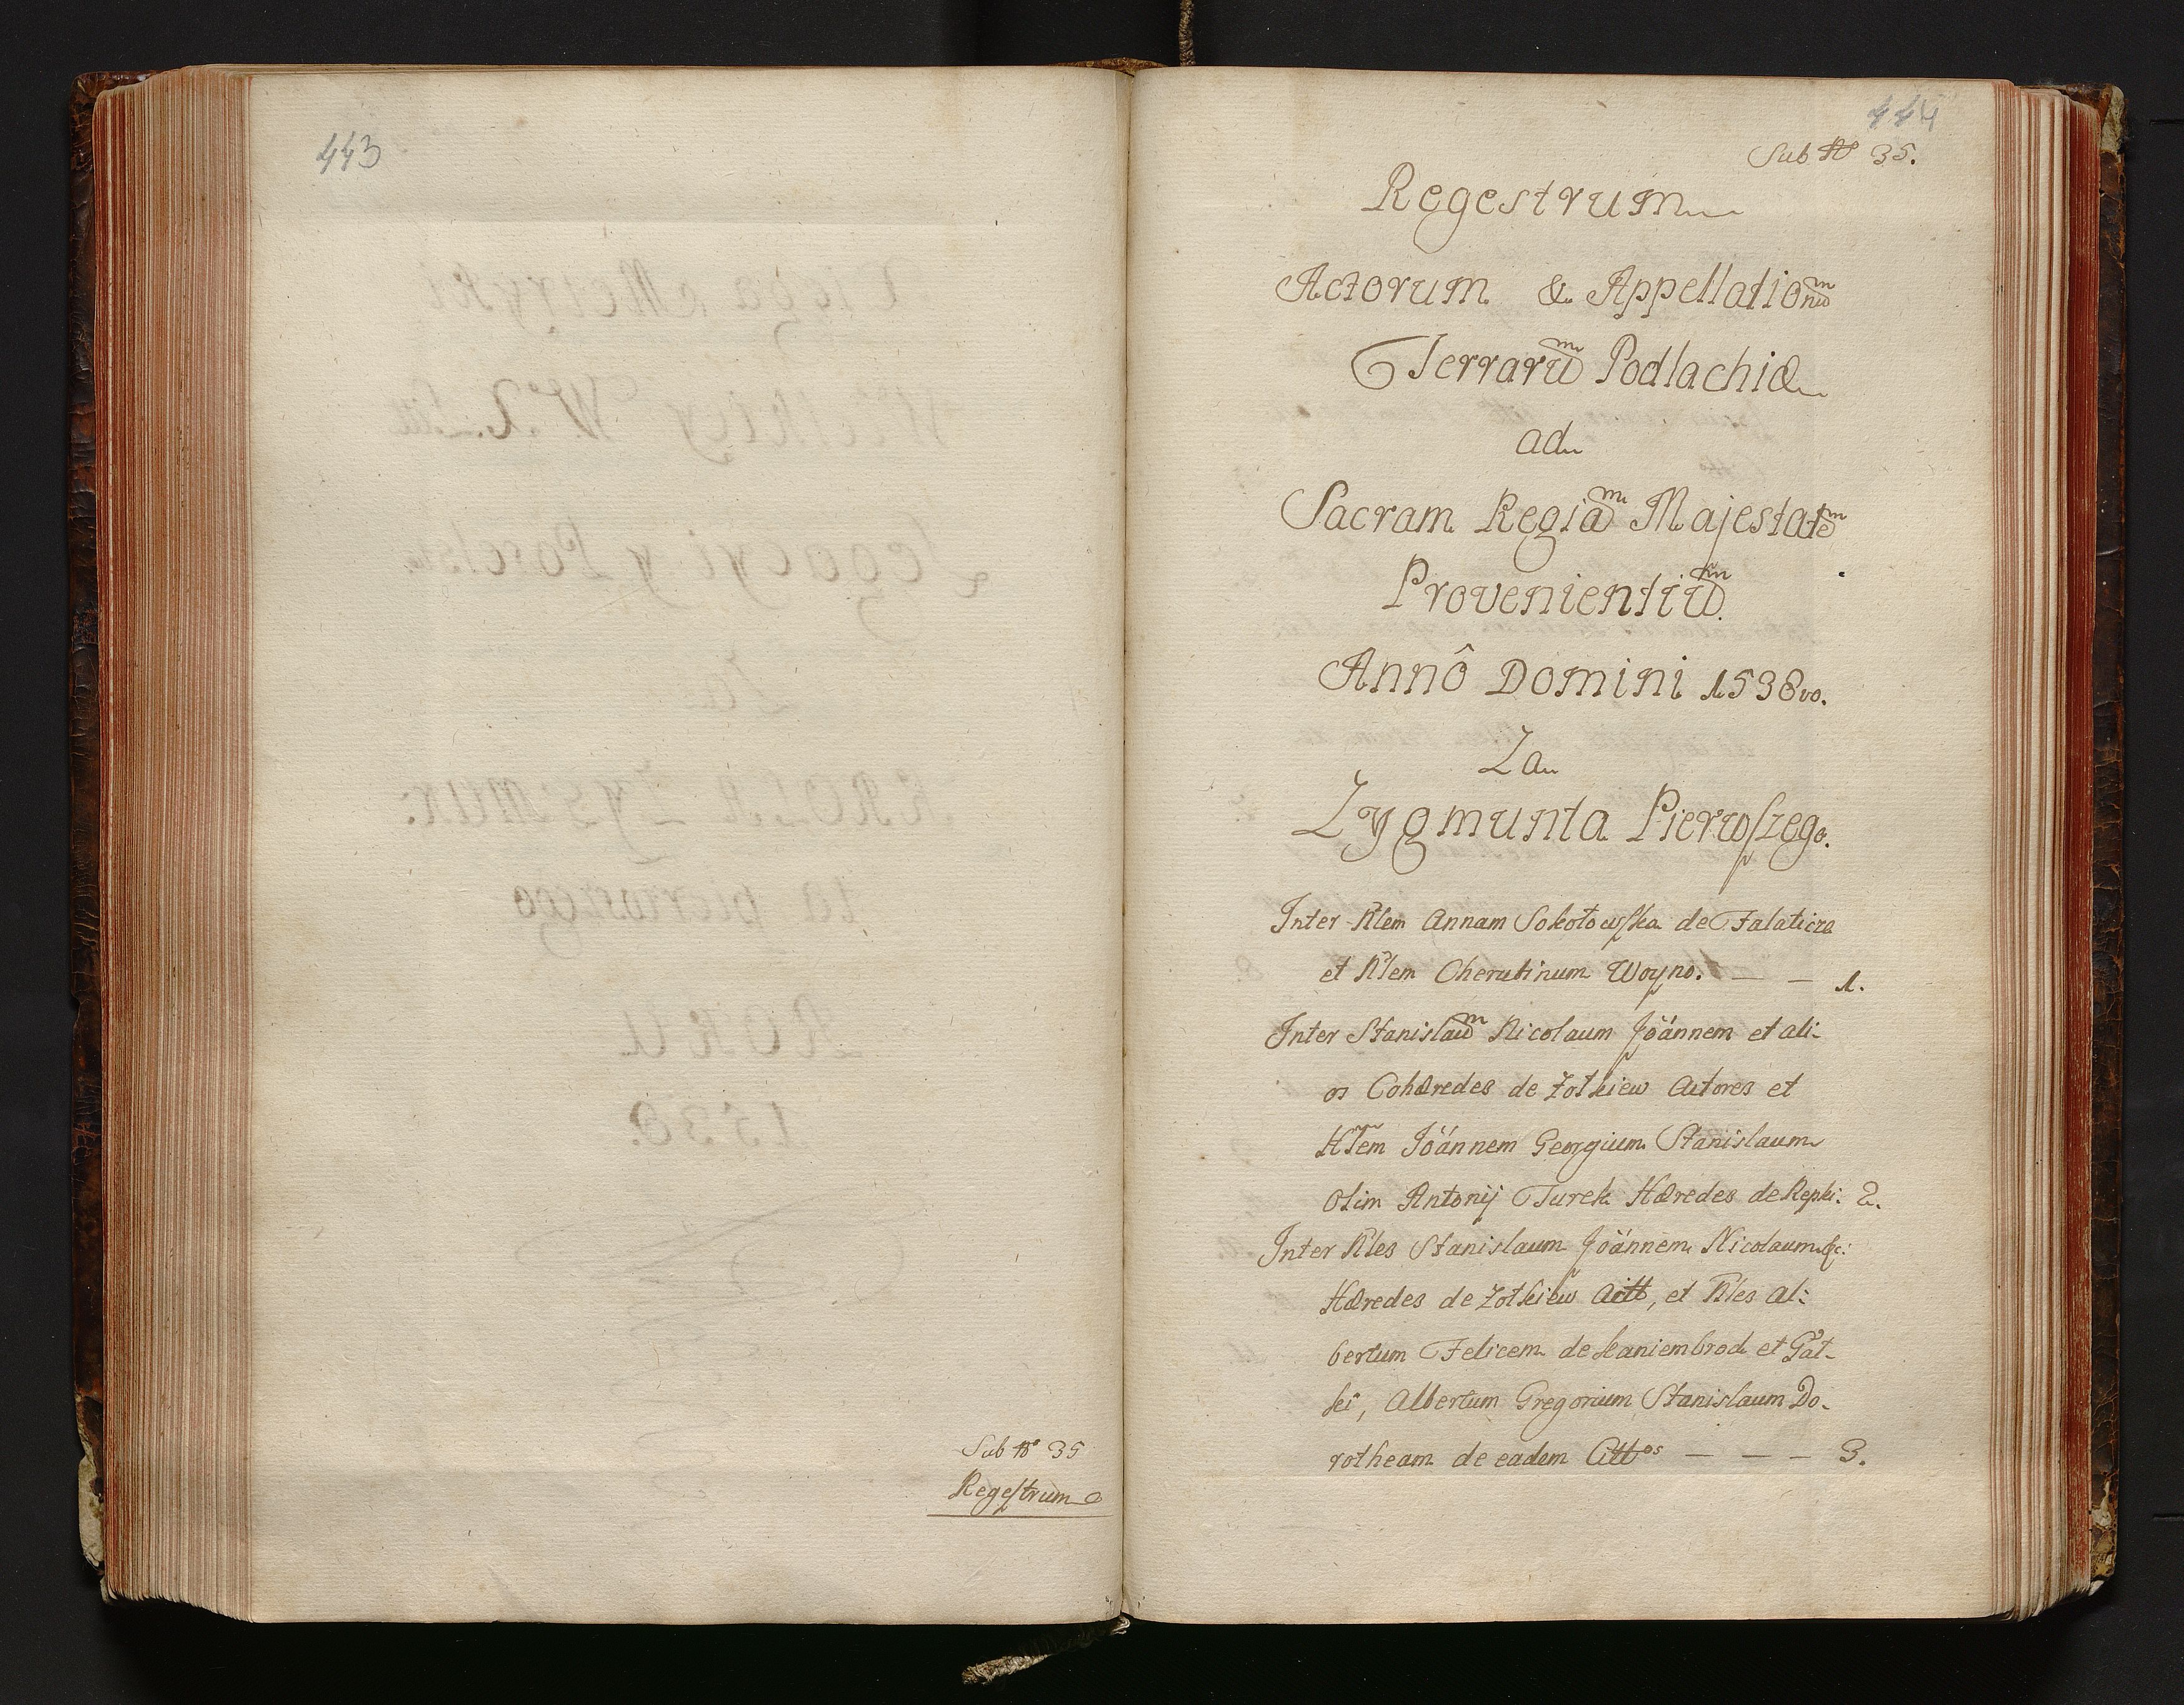 443
Sub No 35
Regestrum
444
Sub No 35.
Regestrum
Actorum & Appellationum
Terrarum Podlachiæ
ad
Sacram Regiam Majestatem
Provenientium.
Annô Domini 1538vo.
Za
Zygmunta Pierwszego.
Inter Nlem Annam Sokołowska de Falaticze
et Nlem Cherubinum Woyno. — — 1.
Inter Stanislaum Nicolaum Joánnem et ali-
os Cohæredes de Zołkiew Actores et
Nlem Joánnem Georgium Stanislaum
Olim Antonij Turek Hæredes de Repki. 2.
Inter Nles Stanislaum Joánnem Nicolaum &c:
Hæredes de Zołkiew Actt, et Nles Al-
bertum Felicem de kaniembrod et Gał-
ki, Albertum Gregorium Stanislaum Do-
rotheam de eadem Cittos — — — 3.